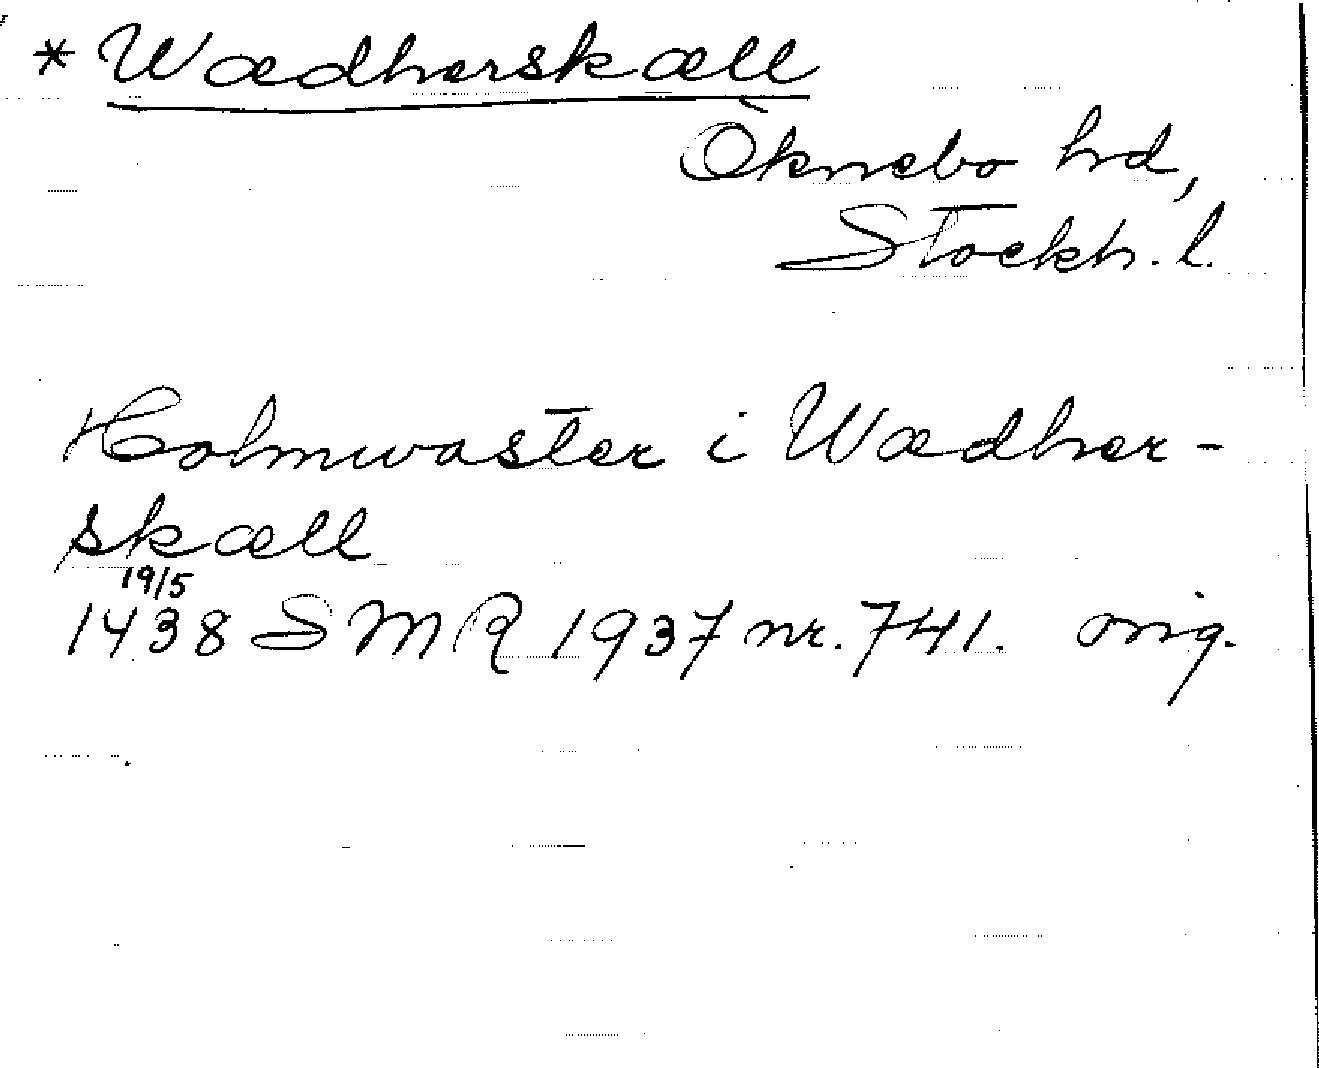 * Wædherskæll
Öknebo hd,
Stockh. l.
Holmwaster i Wædher-
skæll
19/5
1438 SMR 1937 nr. 741. orig.